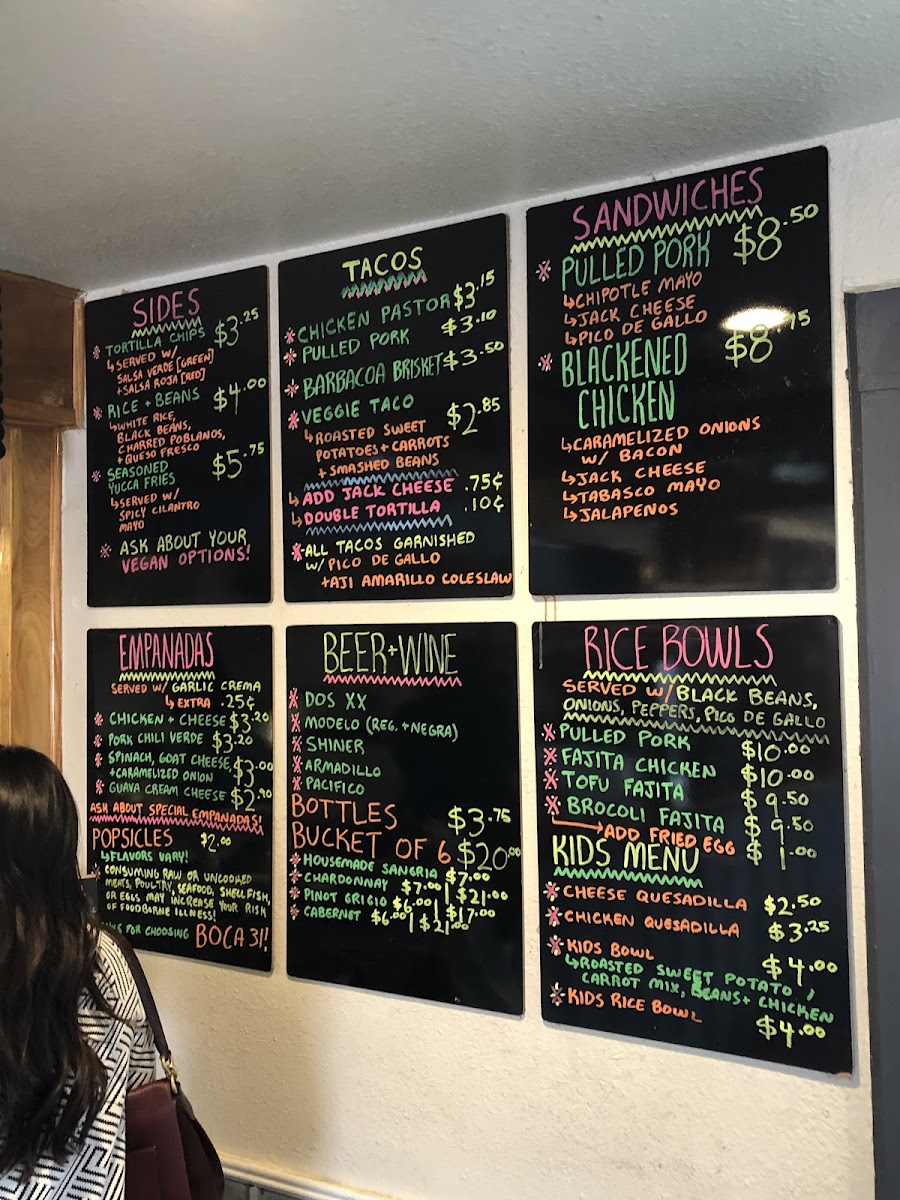 SIDES
* TORTILLA CHIPS $3.25
↳ SERVED W/
SALSA VERDE [GREEN]
+ SALSA ROJA [RED]
* RICE + BEANS $4.00
↳ WHITE RICE,
BLACK BEANS,
CHARRED POBLANOS,
+ QUESO FRESCO
* SEASONED
YUCCA FRIES $5.75
↳ SERVED W/
SPICY CILANTRO
MAYO
* ASK ABOUT YOUR
VEGAN OPTIONS!
TACOS
* CHICKEN PASTOR $3.15
* PULLED PORK $3.10
* BARBACOA BRISKET $3.50
* VEGGIE TACO $2.85
↳ ROASTED SWEET
POTATOES + CARROTS
+ SMASHED BEANS
↳ ADD JACK CHEESE .75¢
↳ DOUBLE TORTILLA .10¢
* ALL TACOS GARNISHED
W/ PICO DE GALLO
+ AJI AMARILLO COLESLAW
SANDWICHES
* PULLED PORK $8.50
↳ CHIPOTLE MAYO
↳ JACK CHEESE
↳ PICO DE GALLO
* BLACKENED $8.75
CHICKEN
↳ CARAMELIZED ONIONS
W/ BACON
↳ JACK CHEESE
↳ TABASCO MAYO
↳ JALAPENOS
EMPANADAS
SERVED W/ GARLIC CREMA
↳ EXTRA .25¢
* CHICKEN + CHEESE $3.20
* PORK CHILI VERDE $3.20
* SPINACH, GOAT CHEESE,
+ CARAMELIZED ONION $3.00
* GUAVA CREAM CHEESE $2.90
ASK ABOUT SPECIAL EMPANADAS!
POPSICLES $2.00
↳ FLAVORS VARY!
* CONSUMING RAW OR UNCOOKED
MEATS, POULTRY, SEAFOOD, SHELLFISH,
OR EGGS MAY INCREASE YOUR RISK
OF FOODBORNE ILLNESS!
FOR CHOOSING BOCA 31!
BEER + WINE
* DOS XX
* MODELO (REG. + NEGRA)
* SHINER
* ARMADILLO
* PACIFICO
BOTTLES $3.75
BUCKET OF 6 $20.00
* HOUSEMADE SANGRIA $7.00
* CHARDONNAY $7.00 | $21.00
* PINOT GRIGIO $6.00 | $17.00
* CABERNET $6.00 | $21.00
RICE BOWLS
SERVED W/ BLACK BEANS,
ONIONS, PEPPERS, PICO DE GALLO
* PULLED PORK $10.00
* FAJITA CHICKEN $10.00
* TOFU FAJITA $9.50
* BROCOLI FAJITA $9.50
→ ADD FRIED EGG $1.00
KIDS MENU
* CHEESE QUESADILLA $2.50
* CHICKEN QUESADILLA $3.25
* KIDS BOWL $4.00
↳ ROASTED SWEET POTATO /
CARROT MIX, BEANS + CHICKEN
* KIDS RICE BOWL $4.00